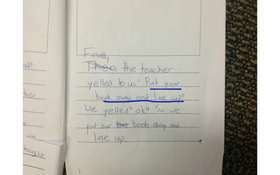 Finally,
the teacher
yelled to us" Put your
book away and line up"
We yelled" ok" So we
put our book away and
line up.